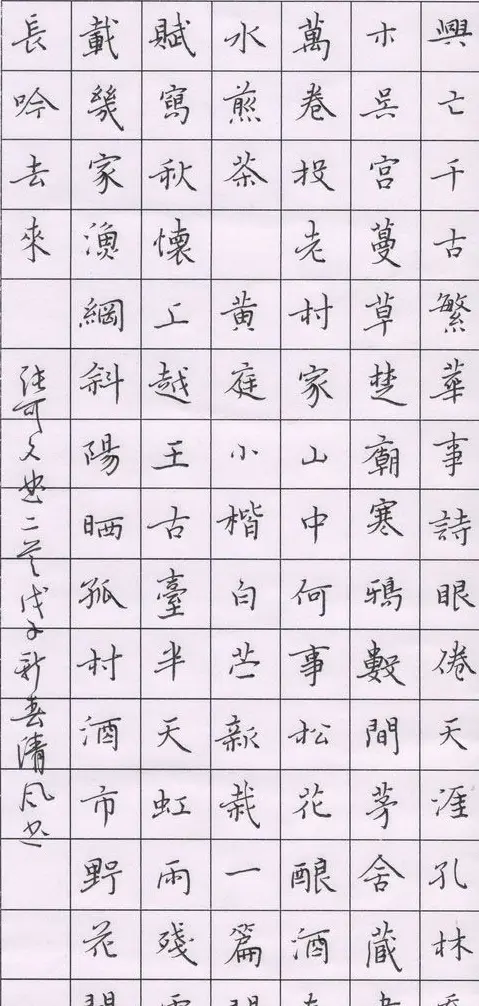 興亡千古繁華事詩眼倦天涯孔林
木吳宮蔓草楚廟寒鴉數間茅舍藏
萬卷投老村家山中何事松花釀酒
水煎茶 黃庭小楷白苧新栽一篇
賦寫秋懷上越王古臺半天虹雨殘
載幾家漁網斜陽晒孤村酒市野花
長吟去來
張可久二首戊子新春清風书